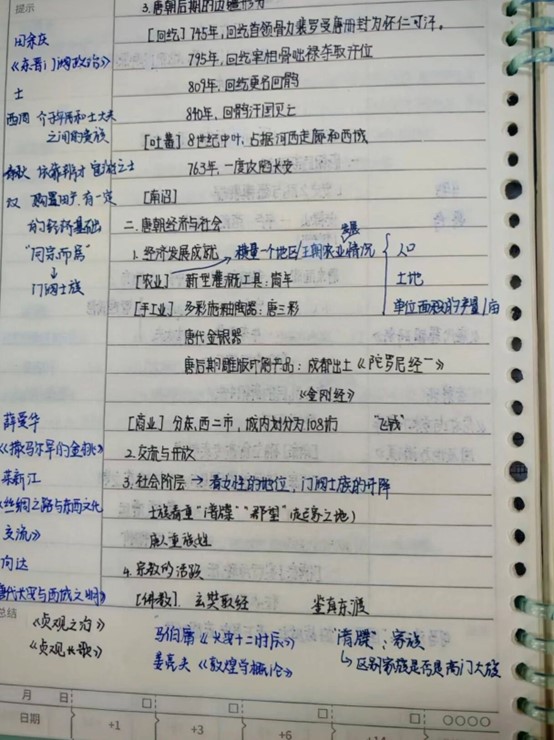 提示
3.唐朝后期的边疆形势
[回纥]745年,回纥首领骨力裴罗受唐册封为怀仁可汗。
795年,回纥宰相骨咄禄夺取汗位
809年,回纥更名回鹘
840年,回鹘汗国灭亡
[吐蕃]8世纪中叶,占据河西走廊和西域
763年,一度攻陷长安
[南诏]
二.唐朝经济与社会
发展
1.经济发展成就 衡量一个地区/王朝农业情况 人口
[农业] 新型灌溉工具:筒车 土地
[手工业] 多彩施釉陶器:唐三彩 单位面积的产量/亩
唐代金银器
唐后期雕版印刷产品:成都出土《陀罗尼经》
《金刚经》
[商业] 分东,西二市,城内划分为108街 "飞钱"
2.交流与开放
3.社会阶层 → 看女性的地位,门阀士族的升降
士族看重"谱牒""郡望"
唐人重族姓
4.宗教的活跃
[佛教]. 玄奘取经 鉴真东渡
田余庆
《东晋门阀政治》
士
西周 介于平民和士大夫
之间的贵族
汉 购置田产,有一定
的
"同宗而居"
↓
门阀士族
薛爱华
《撒马尔罕的金桃》
荣新江
《丝绸之路与东西文化
交流》
向达
《唐代长安与西域文明》
总结
《贞观之治》
《贞观长歌》
马伯庸《长安十二时辰》
姜亮夫《敦煌学概论》
谱牒、家族
↳区别家族是否是高门大族
月 日:
日期 +1 +3 +6 +14